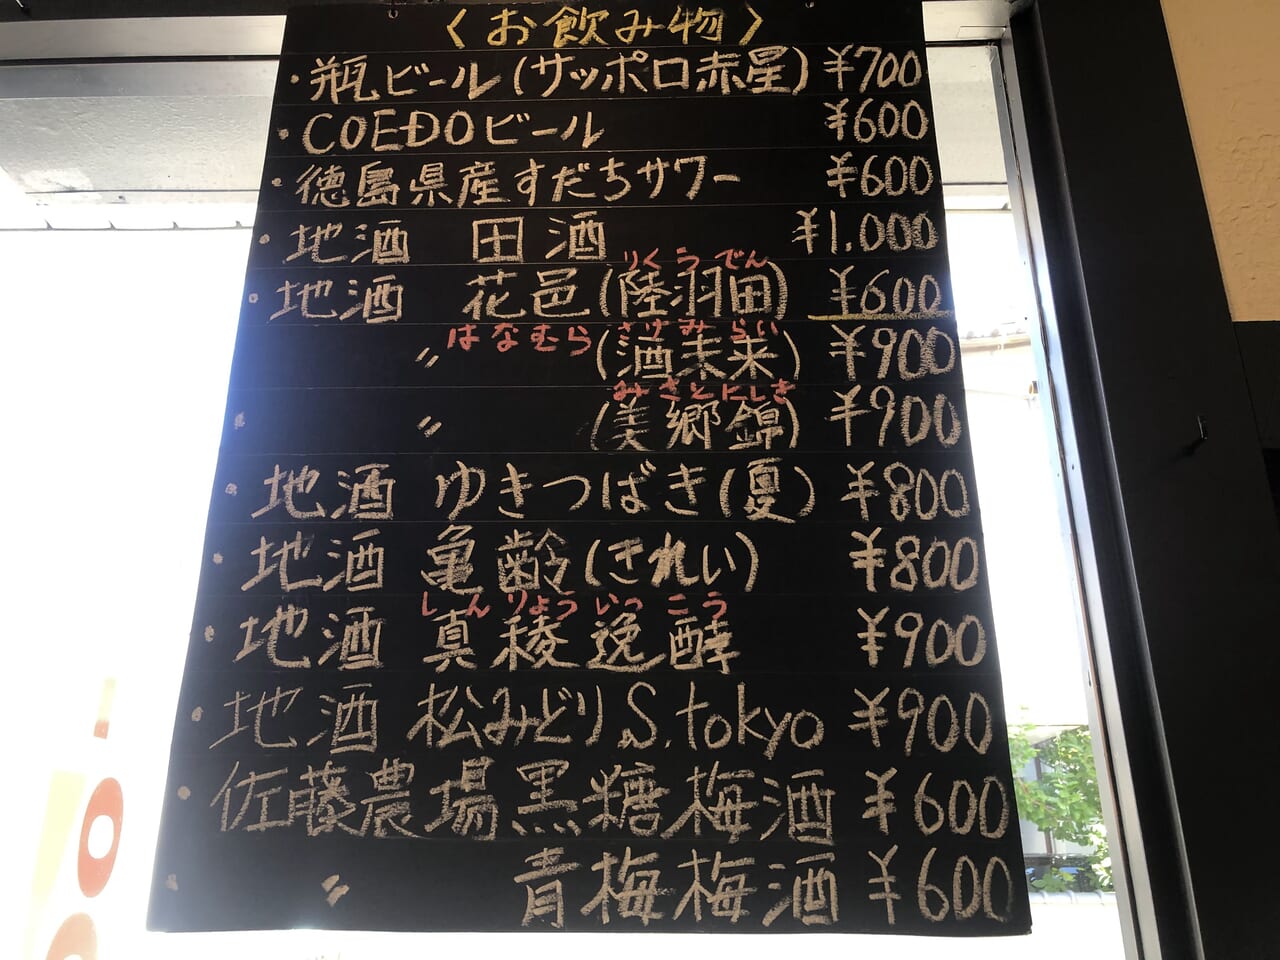 〈お飲み物〉
・瓶ビール(サッポロ赤星) ¥700
・COEDOビール ¥600
・徳島県産すだちサワー ¥600
・地酒 田酒 ¥1.000
りくうでん
・地酒 花邑(陸羽田) ¥600
はなむら さけみらい
〃 (酒未来) ¥900
みさとにしき
・ 〃 (美郷錦) ¥900
・地酒 ゆきつばき(夏) ¥800
・地酒 亀齢(きれい) ¥800
しんりょういっこう
・地酒 真稜逸酵 ¥900
・地酒 松みどりS.tokyo ¥900
・佐藤農場黒糖梅酒 ¥600
・ 〃 青梅梅酒 ¥600